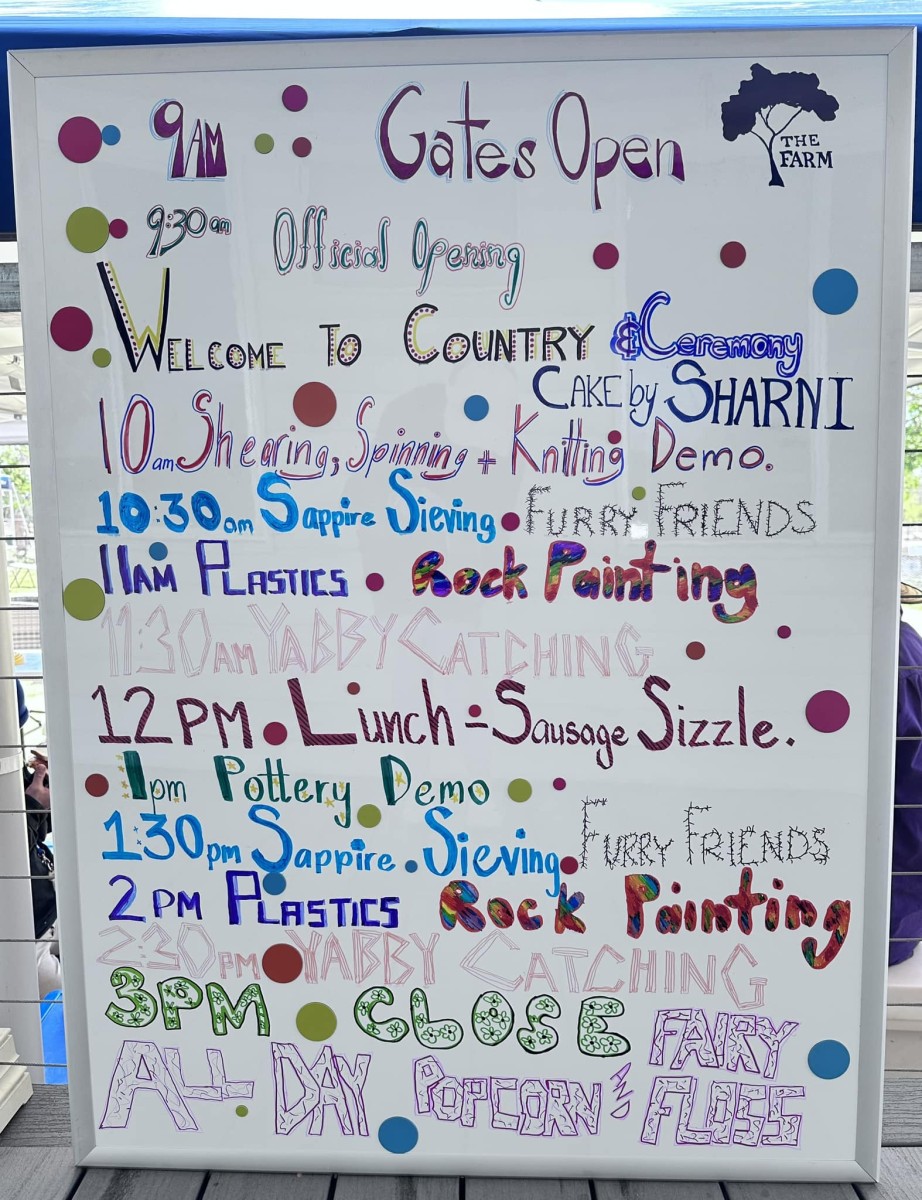 9AM Gates Open
THE FARM
9:30am Official Opening
WELCOME TO COUNTRY & Ceremony
CAKE by SHARNI
10am Shearing, Spinning + Knitting Demo.
10:30am Sappire Sieving FURRY FRIENDS
11AM PLASTICS Rock Painting
11:30AM YABBY CATCHING
12PM Lunch - Sausage Sizzle.
1pm Pottery Demo
1:30pm Sappire Sieving FURRY FRIENDS
2PM PLASTICS Rock Painting
2:30PM YABBY CATCHING
3PM CLOSE
ALL DAY POPCORN & FAIRY FLOSS